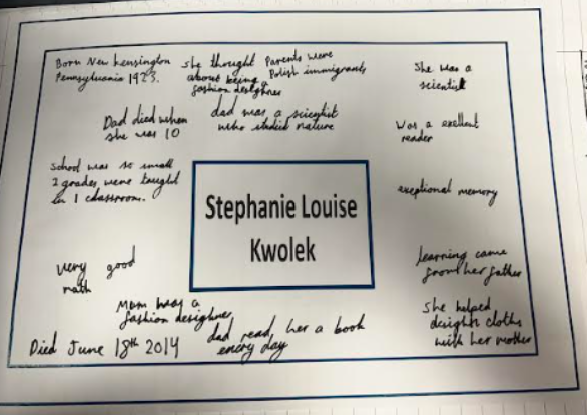 Born New kensington
Pennsylvania 1923.
she thought
about being
fashion desighner
Parents were
Polish immigrants
She was a
scientist
Dad died when
she was 10
dad was a scientist
who studied nature
Was a exellent
reader
School was so small
2 grades were taught
in 1 classroom.
Stephanie Louise
Kwolek
exeptional memory
very good
math
learning came
from her father
Mum was a
fashion desighner
dad read her a book
every day
She helped
desighn cloths
with her mother
Died June 18th 2014